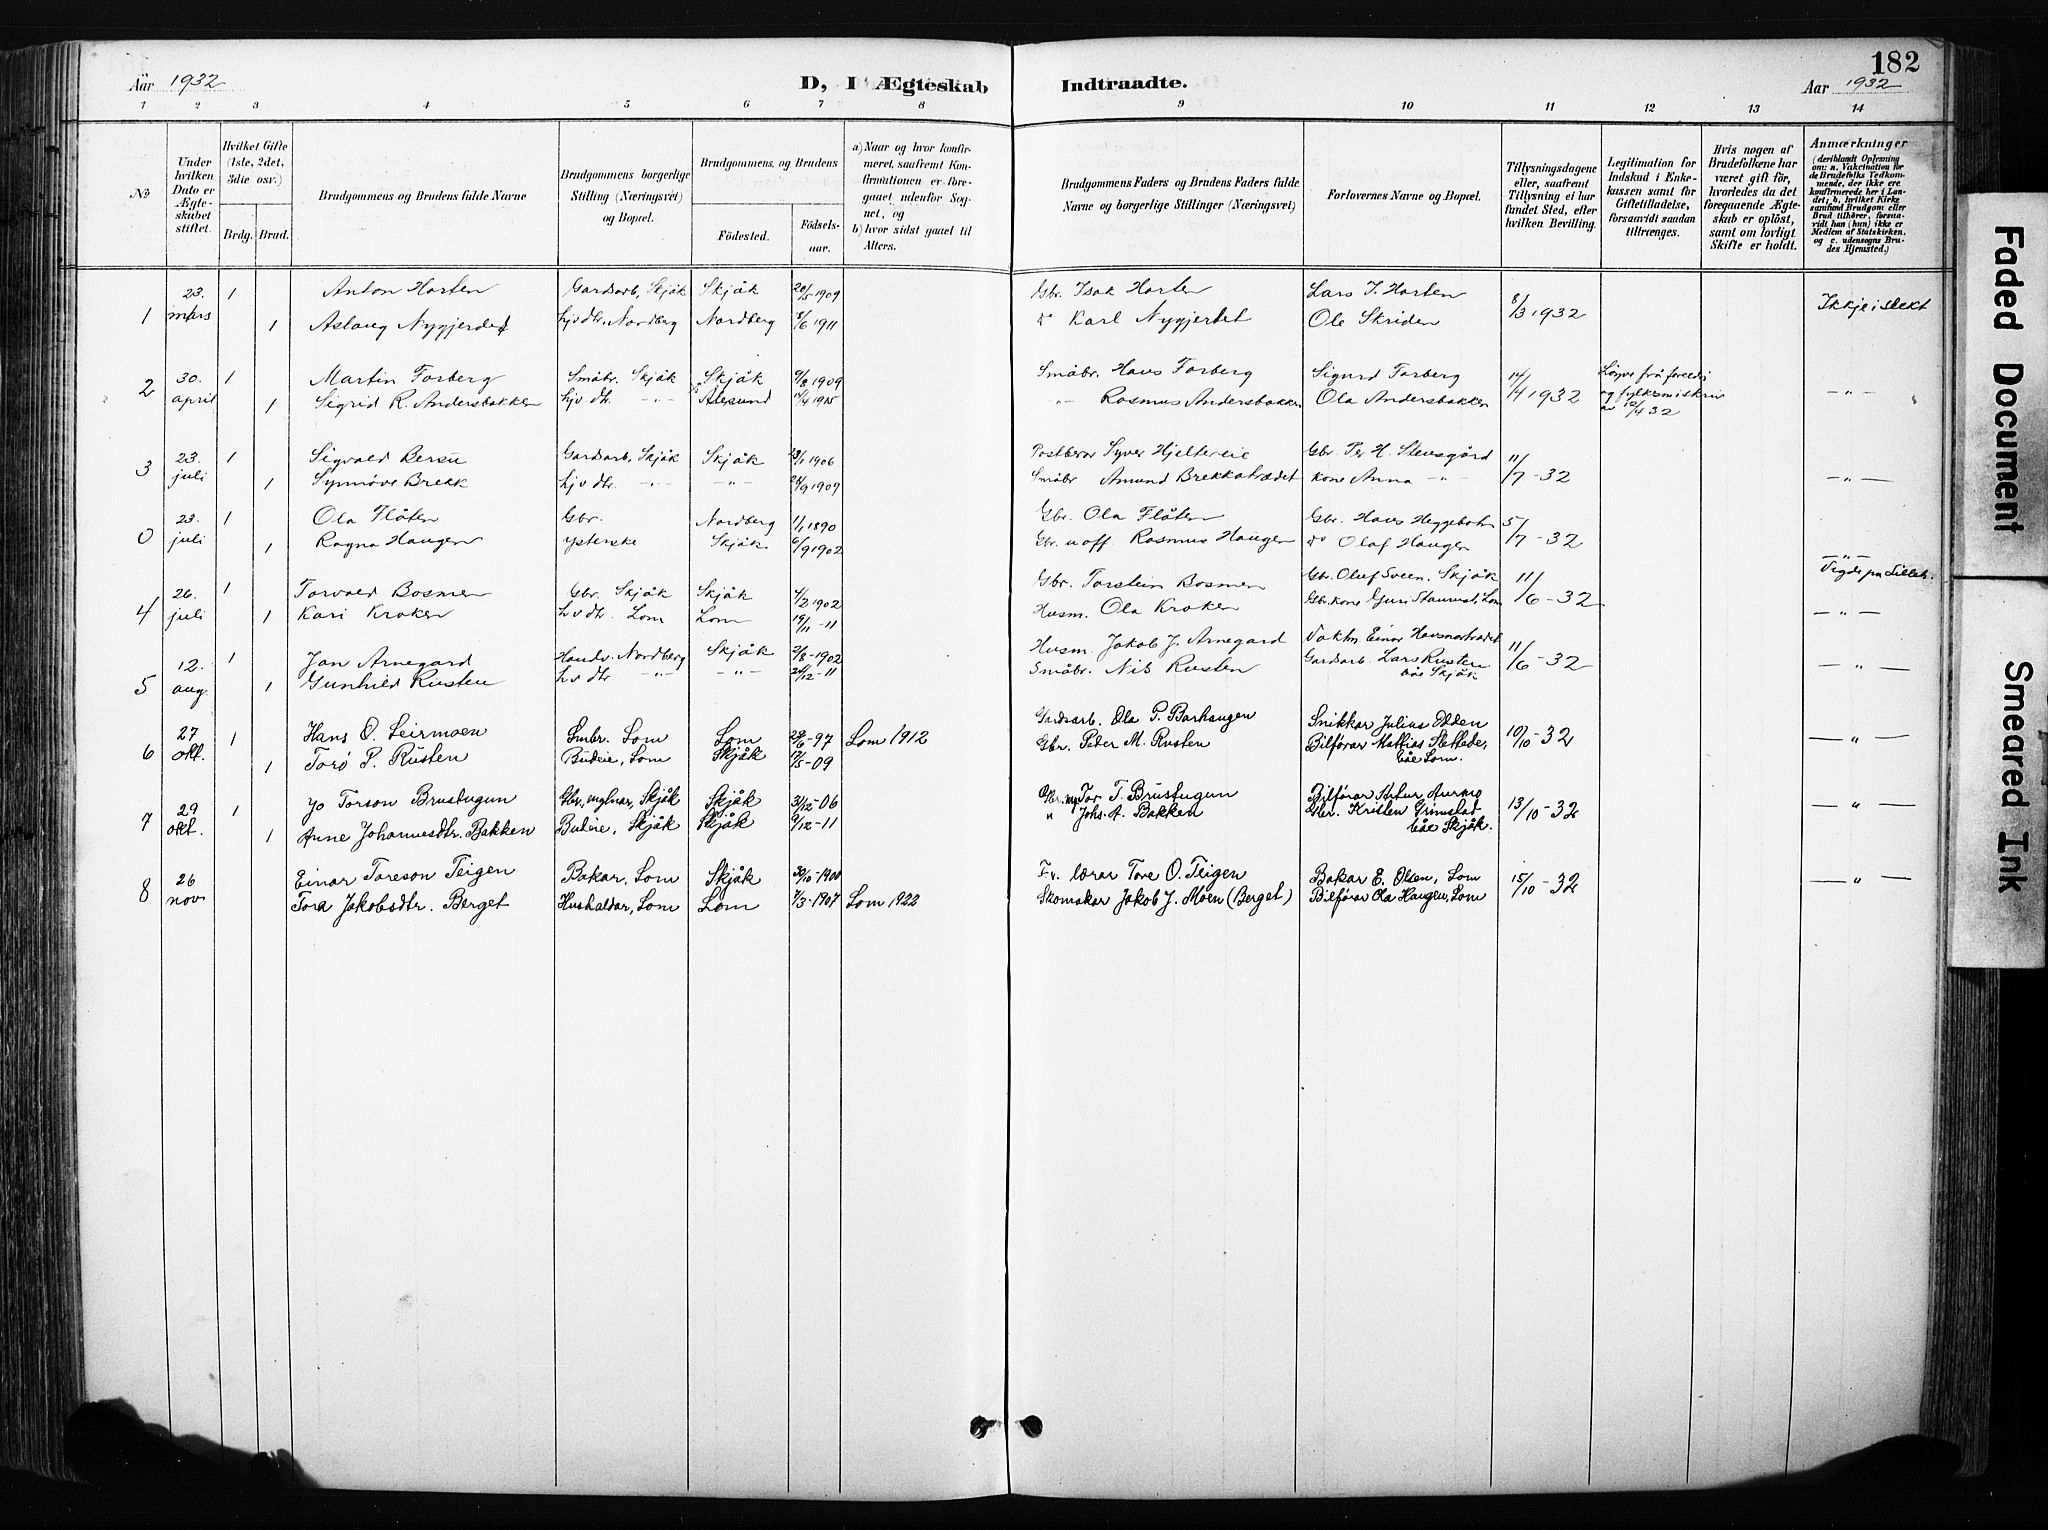 182
Aar 1932
D, I Ægteskab
Indtraadte.
Aar 1932
1 2 3 4 5 6 7 8 9 10 11 12 13 14
No
Under hvilken Dato er Ægteskabet stiftet.
Hvilket Gifte (1ste, 2det, 3die osv.)
Brdg. Brud.
Brudgommens og Brudens fulde Navne
Brudgommens borgerlige Stilling (Næringsvei) og Bopæl.
Brudgommens og Brudens
Födested.
Födselsaar.
a) Naar og hvor konfirmeret, saafremt Konfirmationen er foregaaet udenfor Sognet, og
b) hvor sidst gaaet til Alters.
Brudgommens Faders og Brudens Faders fulde Navne og borgerlige Stillinger (Næringsvei)
Forlovernes Navne og Bopæl.
Tillysningsdagene eller, saafremt Tillysning ei har fundet Sted, efter hvilken Bevilling.
Legitimation for Indskud i Enkekassen samt for Giftetilladelse, forsaavidt saadan tiltrænges.
Hvis nogen af Brudefolkene har været gift før, hvorledes da det foregaaende Ægteskab er oplöst, samt om lovligt Skifte er holdt.
Anmærkninger
(deriblandt Oplysning om: a. Vakcination for de Brudefolks Vedkommende, der ikke ere konfirmerede her i Landet; b. hvilket Kirkesamfund Brudgom eller Brud tilhörer, forsaavidt han (hun) ikke er Medlem af Statskirken, og c. udensogns Brudes Hjemsted.)
1 23. mars 1 Anton Horten Gardsarb, Skjåk Skjåk 20/5 1909 Gbr. Isak Horten Lars I. Horten 8/3 1932 Ikkje i slekt
1 Aslaug Nygjerdet hjv. dtr. Nordberg Nordberg 8/6 1911 do Karl Nygjerdet Ole Skriden
2 30. april 1 Martin Forberg Småbr. Skjåk Skjåk 9/8 1909 Småbr. Hans Forberg Sigurd Forberg 14/4 1932 Løyve frå foreldri
1 Sigrid R. Andersbakken hjv. dtr. -"- Ålesund 1915 -"- Rasmus Andersbakken Ola Andersbakken og fylksm. skriv av 12/4 32 -"-
3 23. juli 1 Sigvald Bersu Gardsarb, Skjåk Skjåk 23/1 1906 Postberar Syver Hjeltereie Gbr. Per H. Stensgård 11/7-32
1 Synnøve Brekk hjv dtr. -"- -"- 24/9 1909 Småbr Amund Brekkatrædet kone Anna -"- -"-
0 23. juli 1 Ola Flåten Gbr. Nordberg 1/1 1890 Gbr. Ola Flåten Gbr. Hans Heggebotn 5/7-32
1 Ragna Haugen ysterske Skjåk 6/9 1902 Gbr. u off. Rasmus Haugen do Olaf Haugen -"-
Vigde på Lilleh.
4 26. juli 1 Torvald Bosmen Gbr. Skjåk Skjåk 4/2 1902 Gbr. Torstein Bosmen Gbr. Oluf Sveen. Skjåk 11/6-32
1 Kari Kroken h.v dtr. Lom Lom 19/11-11 Husm. Ola Kroken Gbr.kone Guri Lom -"-
5 12. aug. 1 Jan Arnegard Nordberg Skjåk 2/8-1902 Husm. Jakob J. Arnegard Vaktm. Einar 11/6-32
1 Gunhild Rusten h.v dtr. -"- -"- 24/12-11 Småbr. Nils Rusten Gardsarb. Lars Rusten båe Skjåk -"-
6 27 okt. 1 Hans O. Leirmoen Smbr. Lom Lom 28/6-97 Lom 1912 Gardsarb. Ola P. Barhaugen Snikkar Julius Odden 10/10-32 -"-
1 Torø P. Rusten Budeie, Lom Skjåk 12/5-09 Gbr. Peter M. Rusten Bilförar Mathias Slettede, båe Lom.
7 29 okt. 1 Jo Torson Brustugun Gbr, mylnar, Skjåk Skjåk 31/12-06 Gbr. my. Tor T. Brustugun Bilförar Artur Aurmo 13/10-32 -"-
1 Anne Johannesdtr. Bakken Budeie, Skjåk Skjåk 9/12-11 " Johs. A. Bakken Gbr. Kristen Grimstad båe Skjåk.
8 26 nov. Einar Toreson Teigen Bakar, Lom Skjåk 30/10-1900 Fv. lærar Tore O. Teigen Bakar E. Olsen, Lom 15/10-32 -"-
Tora Jakobsdtr. Berget Hushaldar, Lom Lom 7/3-1907 Lom 1922 Skomakar Jakob J. Moen (Berget) Bilförar Ola Haugen, Lom
Faded Document
Smeared Ink